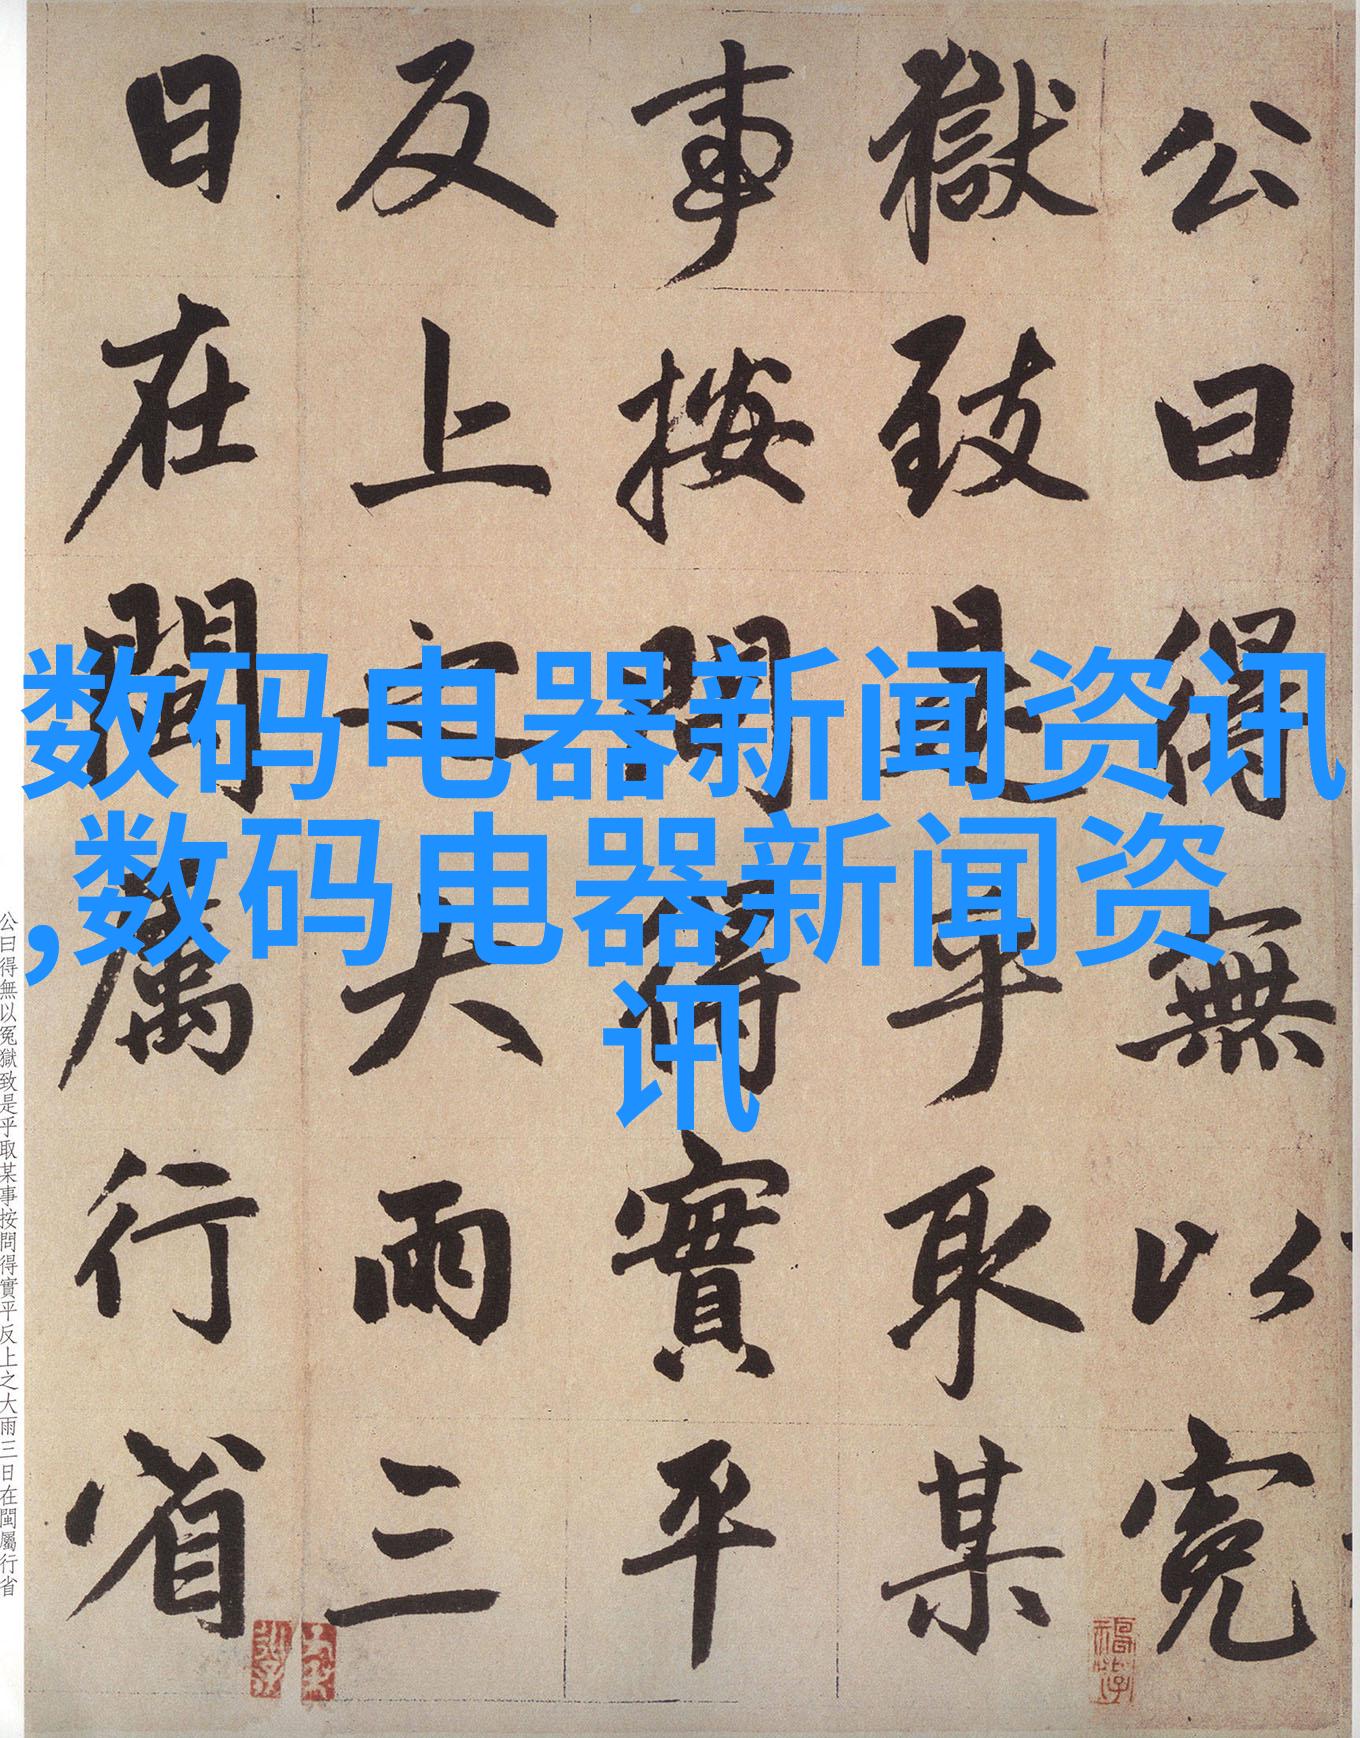 公曰得無以寃
獄致是乎取某
事按問得實平
反上之大雨三
日在閩屬行省
数码电器新闻资讯
,数码电器新闻资
讯
公曰得無以冤獄致是乎取某事按問得實平反上之大雨三日在閩屬行省